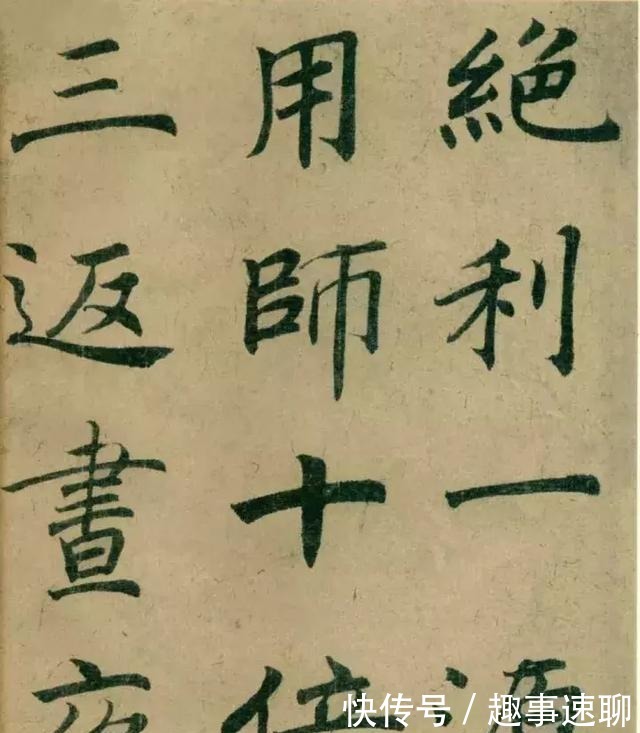 絕利一源
用師十倍
三返晝夜
快传号 / 趣事速聊